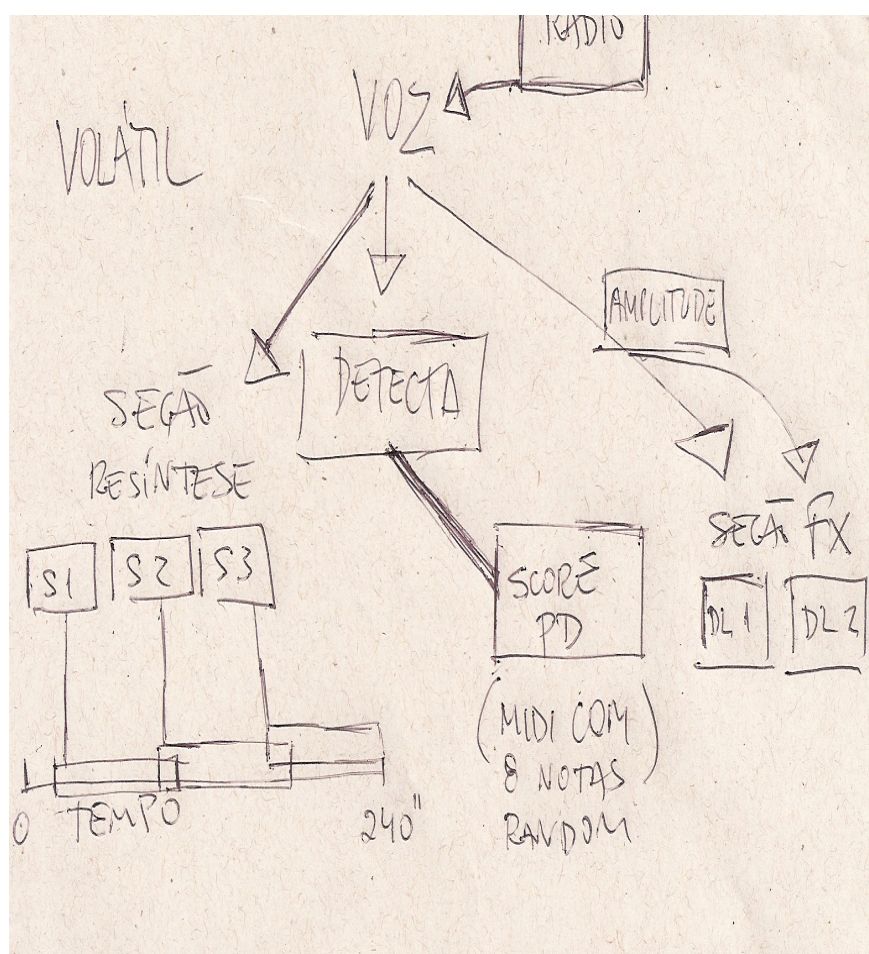 RADIO
VOZ
VOLÁTIL
AMPLITUDE
DETECTA
SEÇÃO
RESÍNTESE
S1 S2 S3
SCORE
PD
(MIDI COM
8 NOTAS)
RANDOM
SEÇÃO FX
DL1 DL2
0 TEMPO 240"